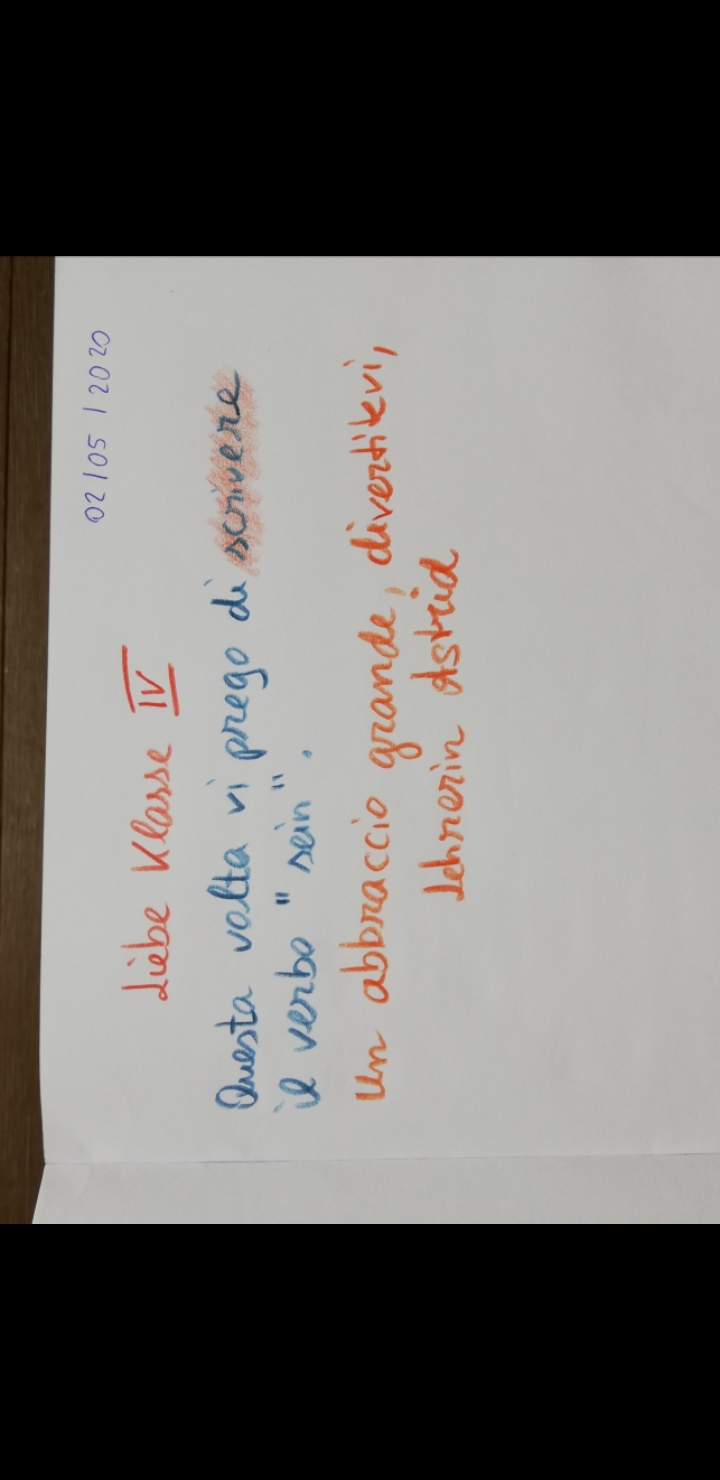 02/05/2020
Liebe Klasse IV
Questa volta vi prego di scrivere
il verbo "sein".
Un abbraccio grande, divertitevi,
Lehrerin Astrid